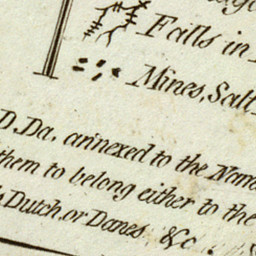 Falls in
Mines, Salt
D, Da, annexed to the Nam
them to belong either to the
Dutch, or Danes &c.